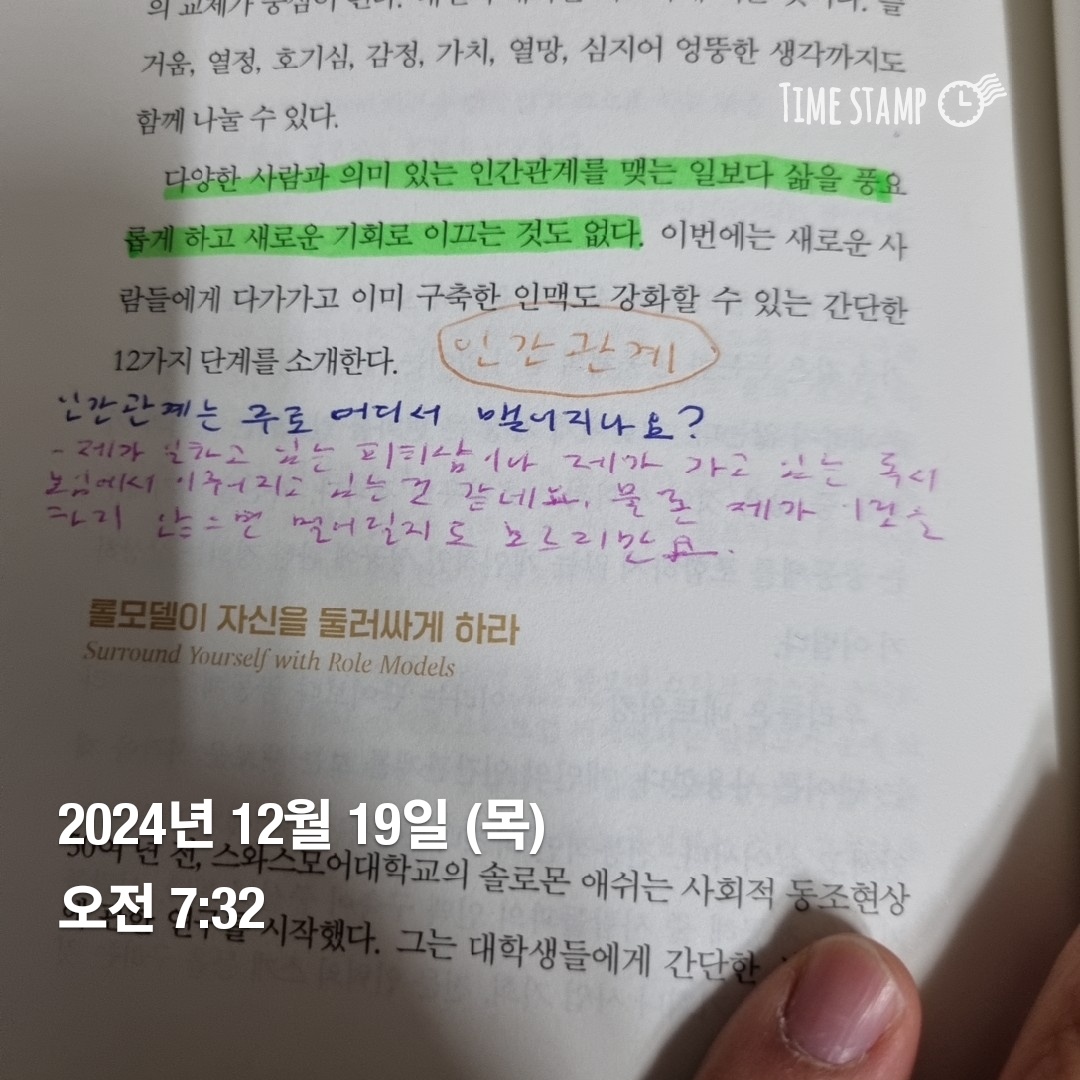 거움, 열정, 호기심, 감정, 가치, 열망, 심지어 엉뚱한 생각까지도
TIME STAMP
함께 나눌 수 있다.
다양한 사람과 의미 있는 인간관계를 맺는 일보다 삶을 풍요
롭게 하고 새로운 기회로 이끄는 것도 없다. 이번에는 새로운 사
람들에게 다가가고 이미 구축한 인맥도 강화할 수 있는 간단한
12가지 단계를 소개한다.
인간관계
인간관계는 주로 어디서 맺어지나요?
- 제가 일하고 있는 피티샵이나 제가 가고 있는 독서
모임에서 이루어지고 있는 것 같네요. 물론 제가 이것을
하지 않으면 멀어질지도 모르지만요.
롤모델이 자신을 둘러싸게 하라
Surround Yourself with Role Models
2024년 12월 19일 (목)
년 전, 스와스모어대학교의 솔로몬 애쉬는 사회적 동조현상
오전 7:32
시작했다. 그는 대학생들에게 간단한